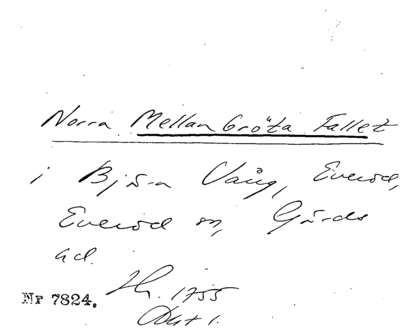 Norra Mellan Gröta Fallet
i Björa Vång, Everöd,
Everöd sn, Gärds
hd.
Nr 7824. 1755
Akt 1.